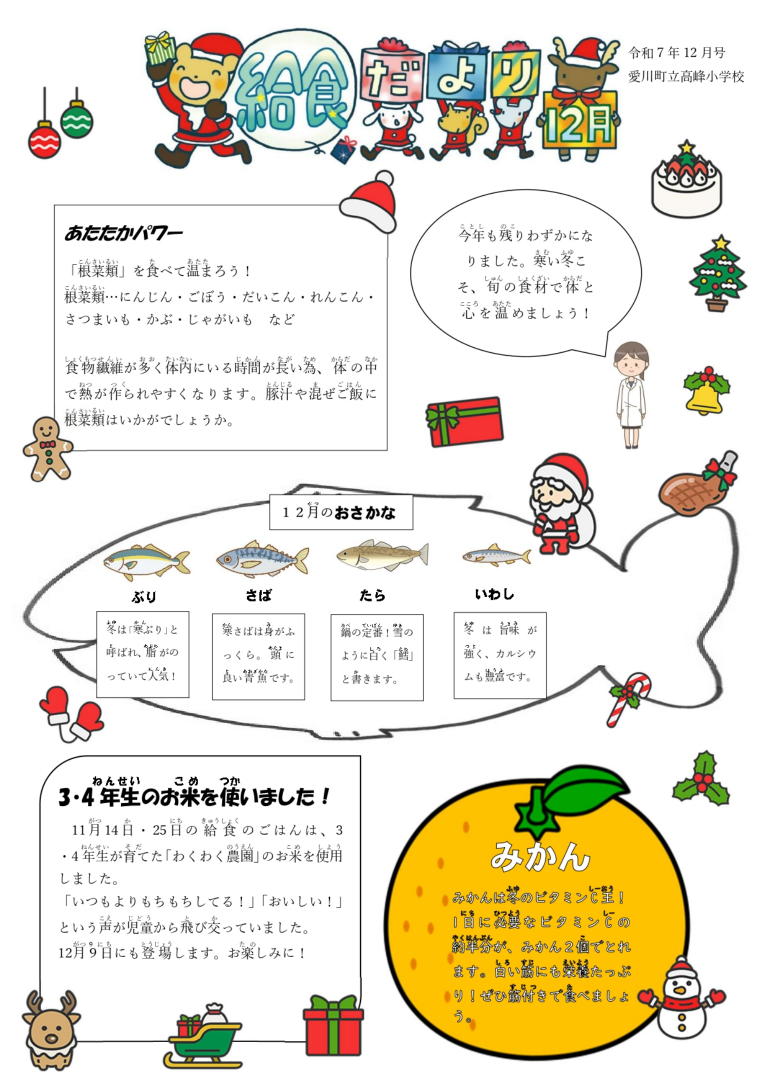 給食だより
12月
令和7年12月号
愛川町立高峰小学校
あたたかパワー
「根菜類」を食べて温まろう！
根菜類…にんじん・ごぼう・だいこん・れんこん・
さつまいも・かぶ・じゃがいも　など
食物繊維が多く体内にいる時間が長い為、体の中
で熱が作られやすくなります。豚汁や混ぜご飯に
根菜類はいかがでしょうか。
今年も残りわずかにな
りました。寒い冬こ
そ、旬の食材で体と
心を温めましょう！
１２月のおさかな
ぶり
冬は「寒ぶり」と
呼ばれ、脂がの
っていて人気！
さば
寒さばは身がふ
っくら。頭に
良い青魚です。
たら
鍋の定番！雪の
ように白く「鱈」
と書きます。
いわし
冬は旨味が
強く、カルシウ
ムも豊富です。
3・4年生のお米を使いました！
11月14日・25日の給食のごはんは、3
・4年生が育てた「わくわく農園」のお米を使用
しました。
「いつもよりもちもちしてる！」「おいしい！」
という声が児童から飛び交っていました。
12月9日にも登場します。お楽しみに！
みかん
みかんは冬のビタミンC王！
1日に必要なビタミンCの
約半分が、みかん２個でとれ
ます。白い筋にも栄養たっぷ
り！ぜひ筋付きで食べましょ
う。